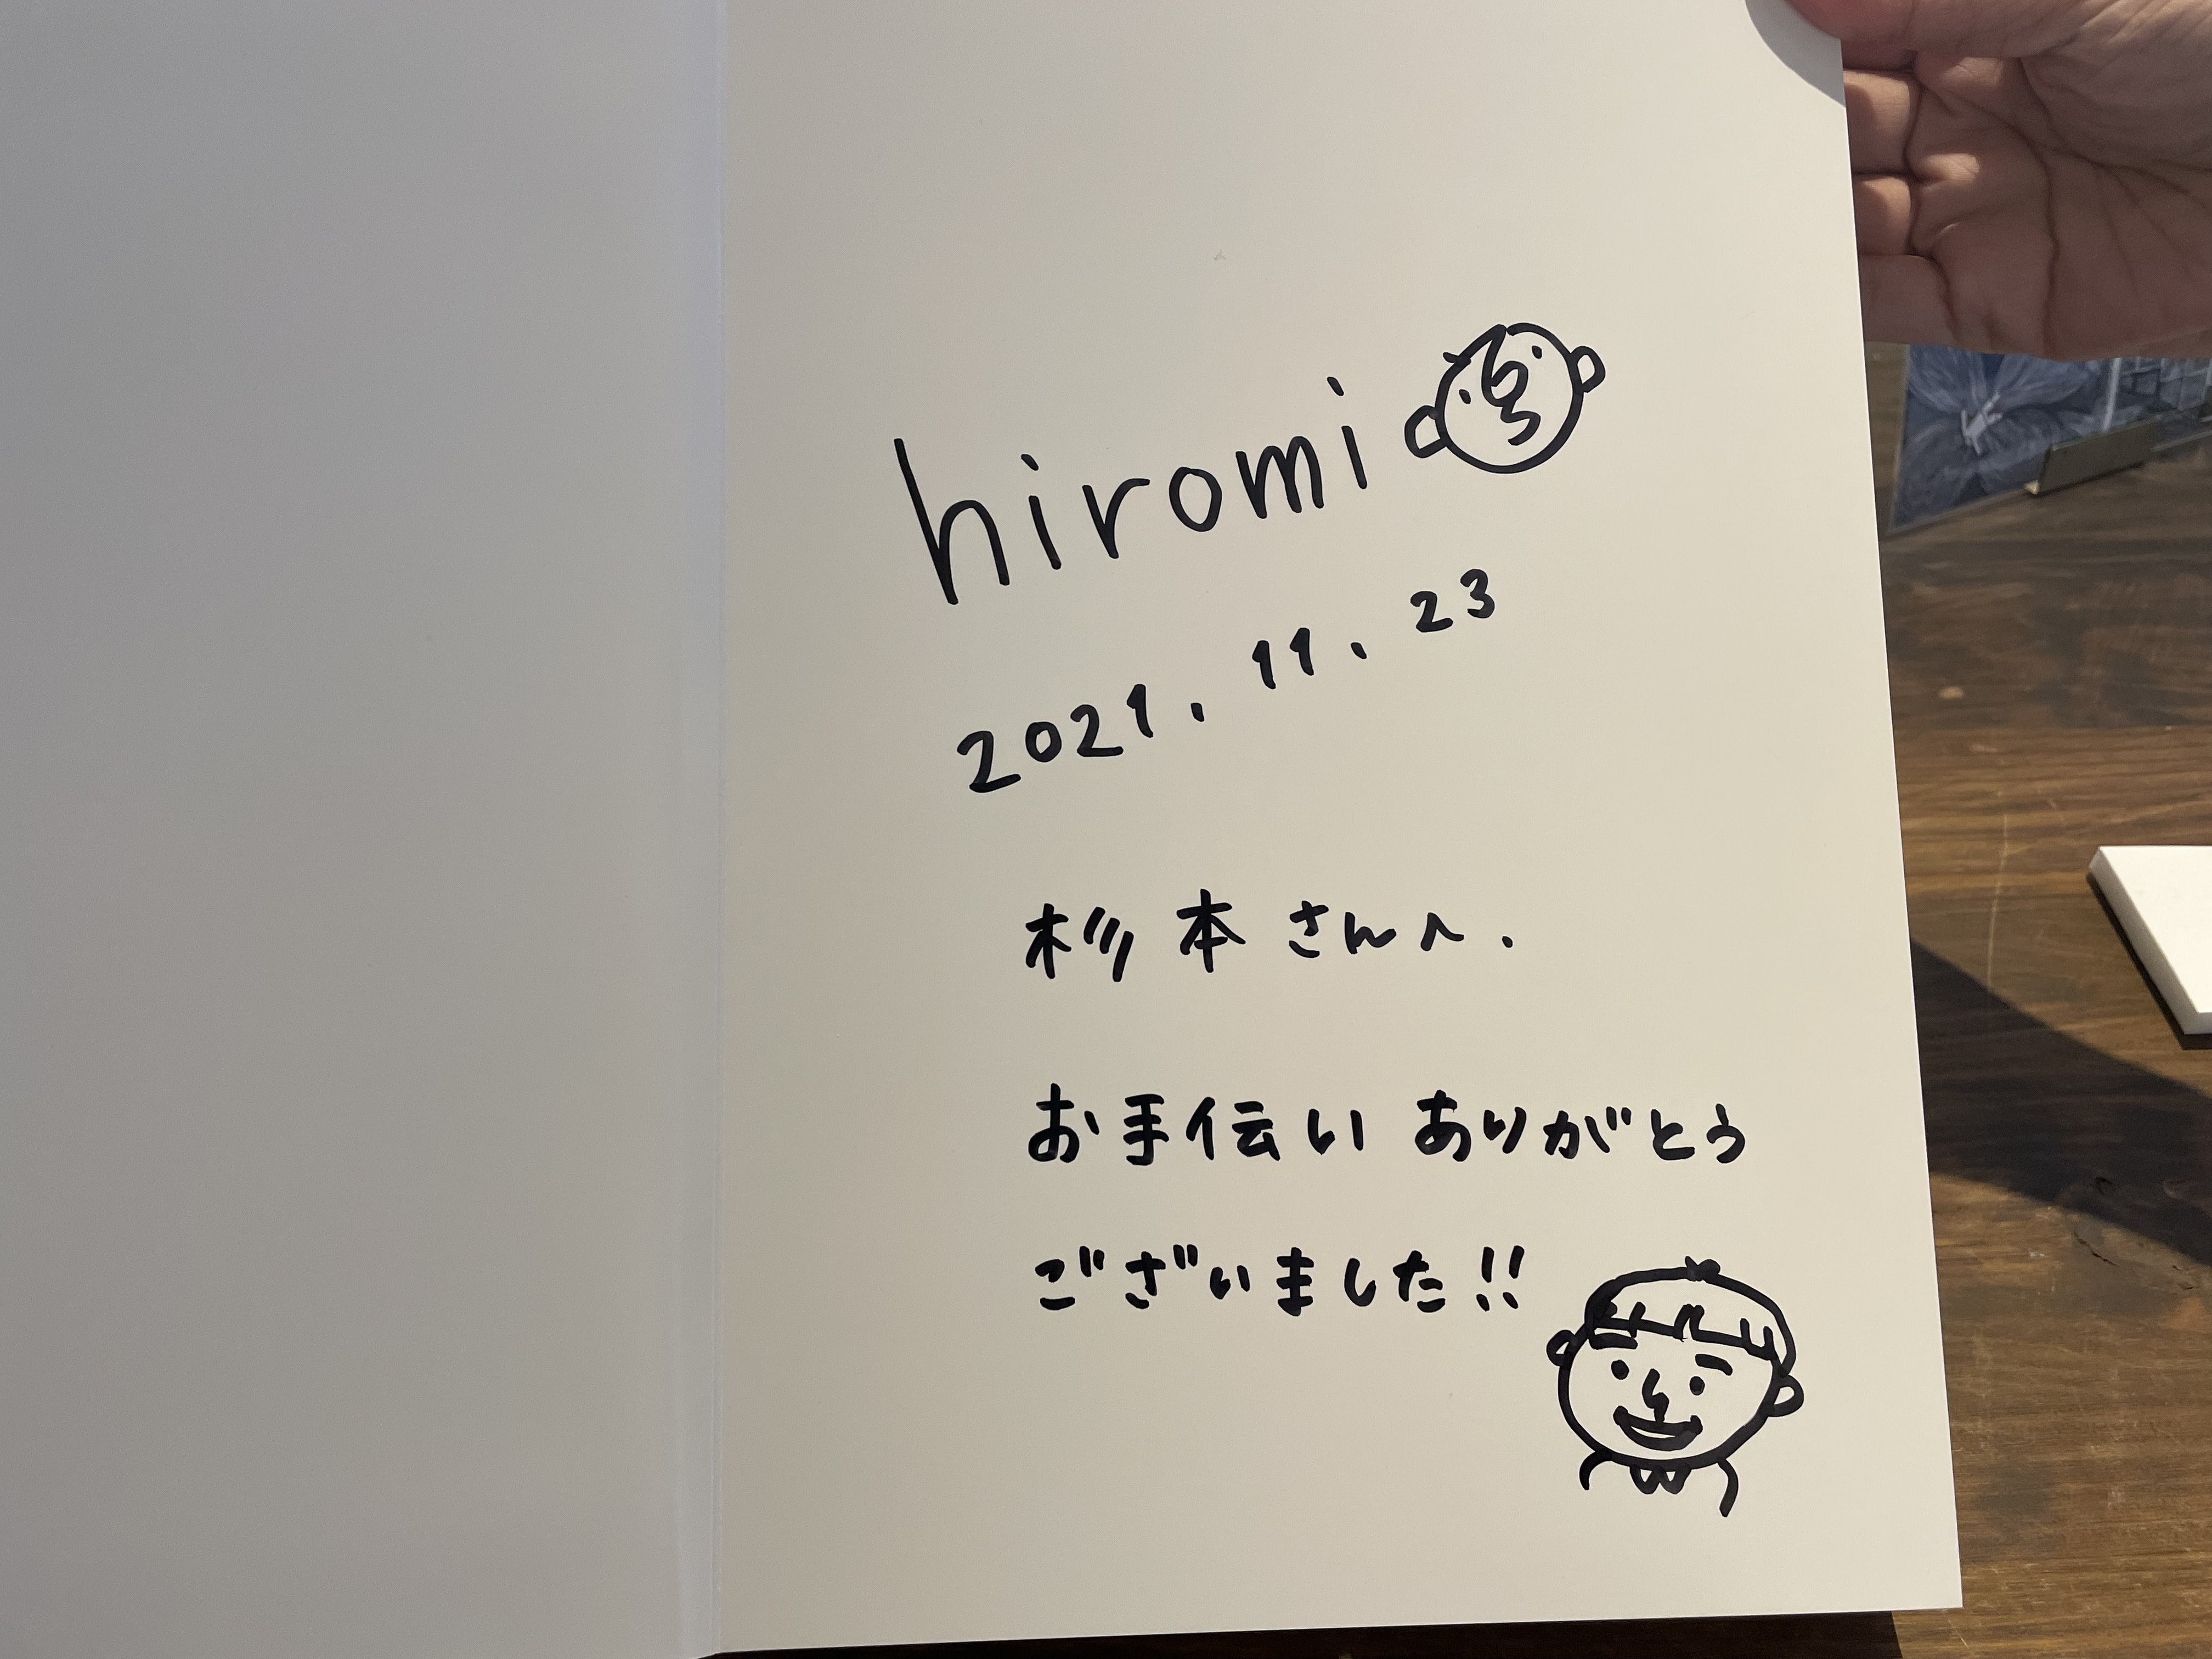 hiromi
2021.11.23
杉本さんへ.
お手伝いありがとう
ございました!!